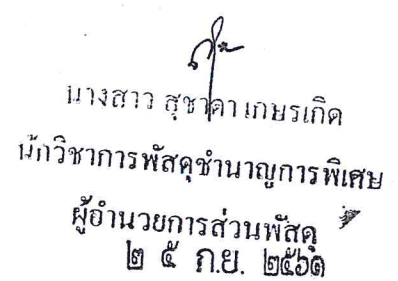 นางสาว สุชาดา เกษรเกิด
นักวิชาการพัสดุชำนาญการพิเศษ
ผู้อำนวยการส่วนพัสดุ
๒ ๕ ก.ย. ๒๕๖๑